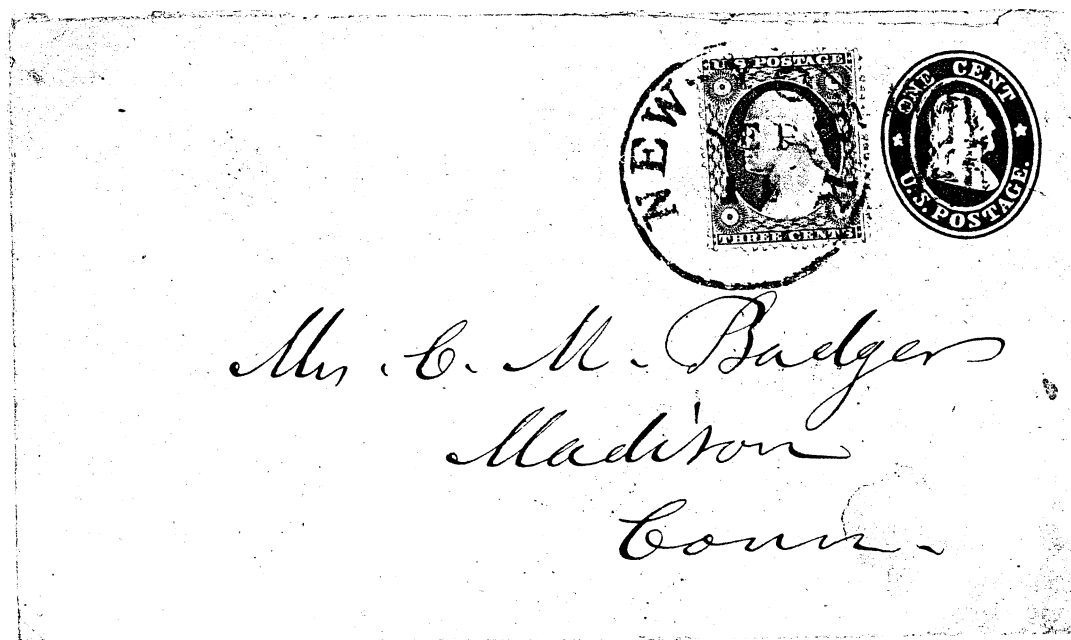 U.S POSTAGE
THREE CENTS
NEW
ONE CENT
U.S. POSTAGE.
Mrs. C. M. Badger
Madison
Conn.